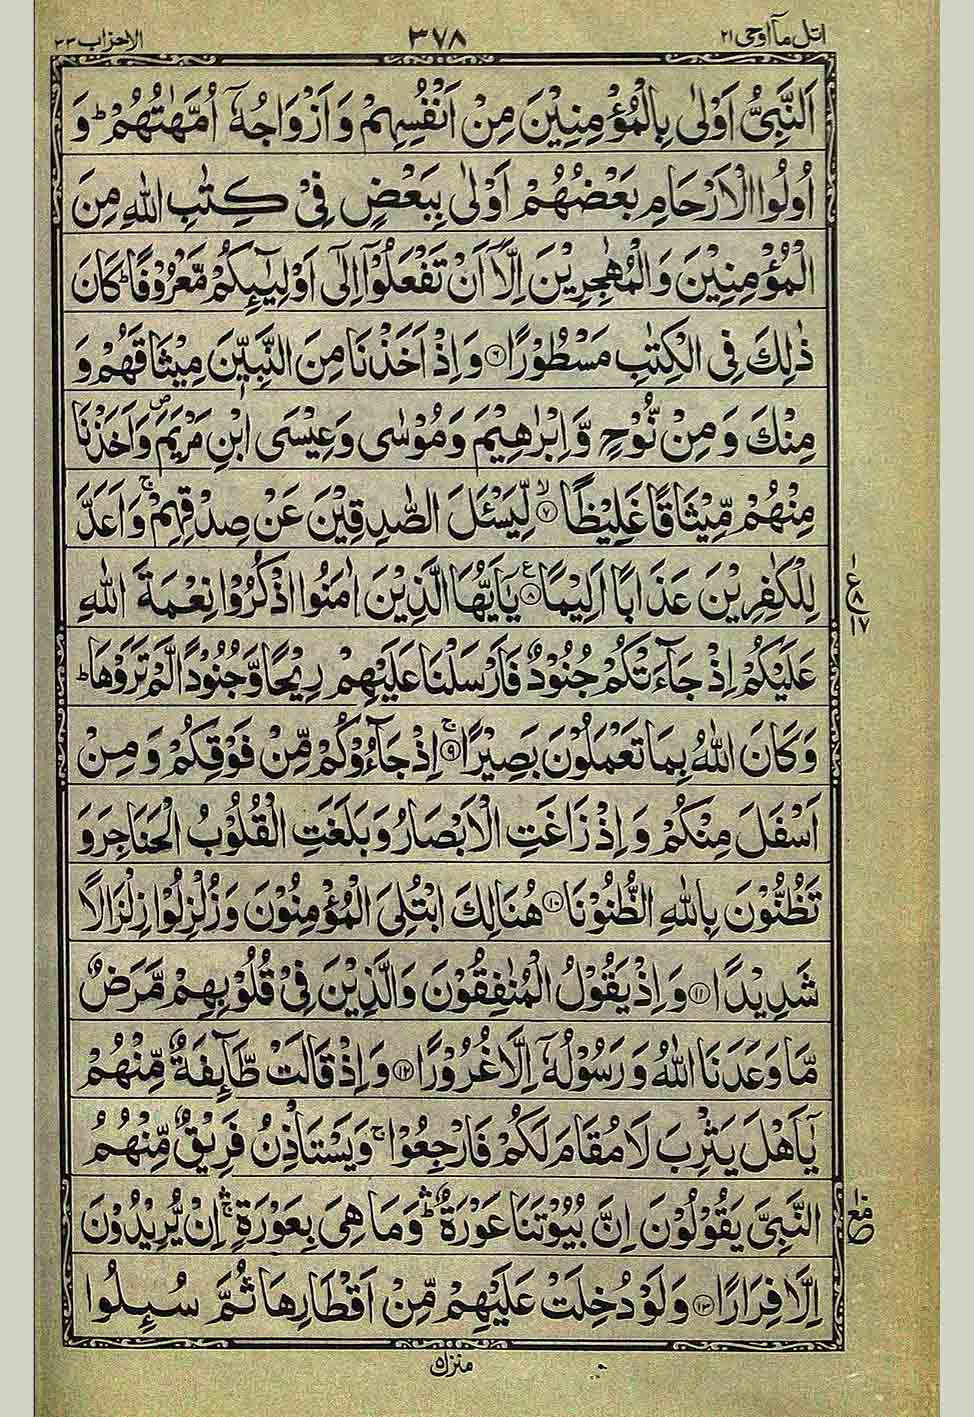 اتل مآ اوحی ٢١ ٣٧٨ الاحزاب ٣٣
اَلنَّبِیُّ اَوْلٰی بِالْمُؤْمِنِیْنَ مِنْ اَنْفُسِهِمْ وَ اَزْوَاجُهٗۤ اُمَّهٰتُهُمْ ؕ وَ
اُولُوا الْاَرْحَامِ بَعْضُهُمْ اَوْلٰی بِبَعْضٍ فِیْ كِتٰبِ اللّٰهِ مِنَ
الْمُؤْمِنِیْنَ وَ الْمُهٰجِرِیْنَ اِلَّاۤ اَنْ تَفْعَلُوْۤا اِلٰۤی اَوْلِیٰٓىِٕكُمْ مَّعْرُوْفًا ؕ كَانَ
ذٰلِكَ فِی الْكِتٰبِ مَسْطُوْرًا ﴿٦﴾ وَ اِذْ اَخَذْنَا مِنَ النَّبِیّٖنَ مِیْثَاقَهُمْ وَ
مِنْكَ وَ مِنْ نُّوْحٍ وَّ اِبْرٰهِیْمَ وَ مُوْسٰی وَ عِیْسَی ابْنِ مَرْیَمَ ۪ وَ اَخَذْنَا
مِنْهُمْ مِّیْثَاقًا غَلِیْظًا ۙ﴿٧﴾ لِّیَسْـَٔلَ الصّٰدِقِیْنَ عَنْ صِدْقِهِمْ ۚ وَ اَعَدَّ
لِلْكٰفِرِیْنَ عَذَابًا اَلِیْمًا ﴿٨﴾ع یٰۤاَیُّهَا الَّذِیْنَ اٰمَنُوا اذْكُرُوْا نِعْمَةَ اللّٰهِ
ع ١ ٨ ١٧
عَلَیْكُمْ اِذْ جَآءَتْكُمْ جُنُوْدٌ فَاَرْسَلْنَا عَلَیْهِمْ رِیْحًا وَّ جُنُوْدًا لَّمْ تَرَوْهَا ؕ
وَ كَانَ اللّٰهُ بِمَا تَعْمَلُوْنَ بَصِیْرًا ۚ﴿٩﴾ اِذْ جَآءُوْكُمْ مِّنْ فَوْقِكُمْ وَ مِنْ
اَسْفَلَ مِنْكُمْ وَ اِذْ زَاغَتِ الْاَبْصَارُ وَ بَلَغَتِ الْقُلُوْبُ الْحَنَاجِرَ وَ
تَظُنُّوْنَ بِاللّٰهِ الظُّنُوْنَا ﴿١٠﴾ هُنَالِكَ ابْتُلِیَ الْمُؤْمِنُوْنَ وَ زُلْزِلُوْا زِلْزَالًا
شَدِیْدًا ﴿١١﴾ وَ اِذْ یَقُوْلُ الْمُنٰفِقُوْنَ وَ الَّذِیْنَ فِیْ قُلُوْبِهِمْ مَّرَضٌ
مَّا وَعَدَنَا اللّٰهُ وَ رَسُوْلُهٗۤ اِلَّا غُرُوْرًا ﴿١٢﴾ وَ اِذْ قَالَتْ طَّآىِٕفَةٌ مِّنْهُمْ
یٰۤاَهْلَ یَثْرِبَ لَا مُقَامَ لَكُمْ فَارْجِعُوْا ۚ وَ یَسْتَاْذِنُ فَرِیْقٌ مِّنْهُمُ
النَّبِیَّ یَقُوْلُوْنَ اِنَّ بُیُوْتَنَا عَوْرَةٌ ؕۛ وَ مَا هِیَ بِعَوْرَةٍ ۚۛ اِنْ یُّرِیْدُوْنَ
اِلَّا فِرَارًا ﴿١٣﴾ وَ لَوْ دُخِلَتْ عَلَیْهِمْ مِّنْ اَقْطَارِهَا ثُمَّ سُىِٕلُوا
منزل ٥